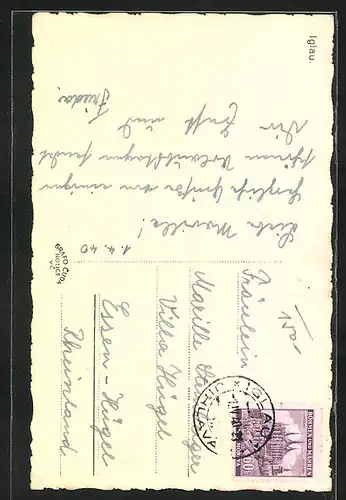 Iglau.
1. 4. 40
Liebe Mareille!
Herzliche Grüße von einigen
schönen Urlaubstagen sendet
Dir Ernst und
Frieda.
GRAFO ČUDA
HOLICE
Fräulein
Mareille
Villa Hügel
Essen - Hügel
Rheinland
IGLAU
JIHLAVA
BÖHMEN UND MÄHREN
60